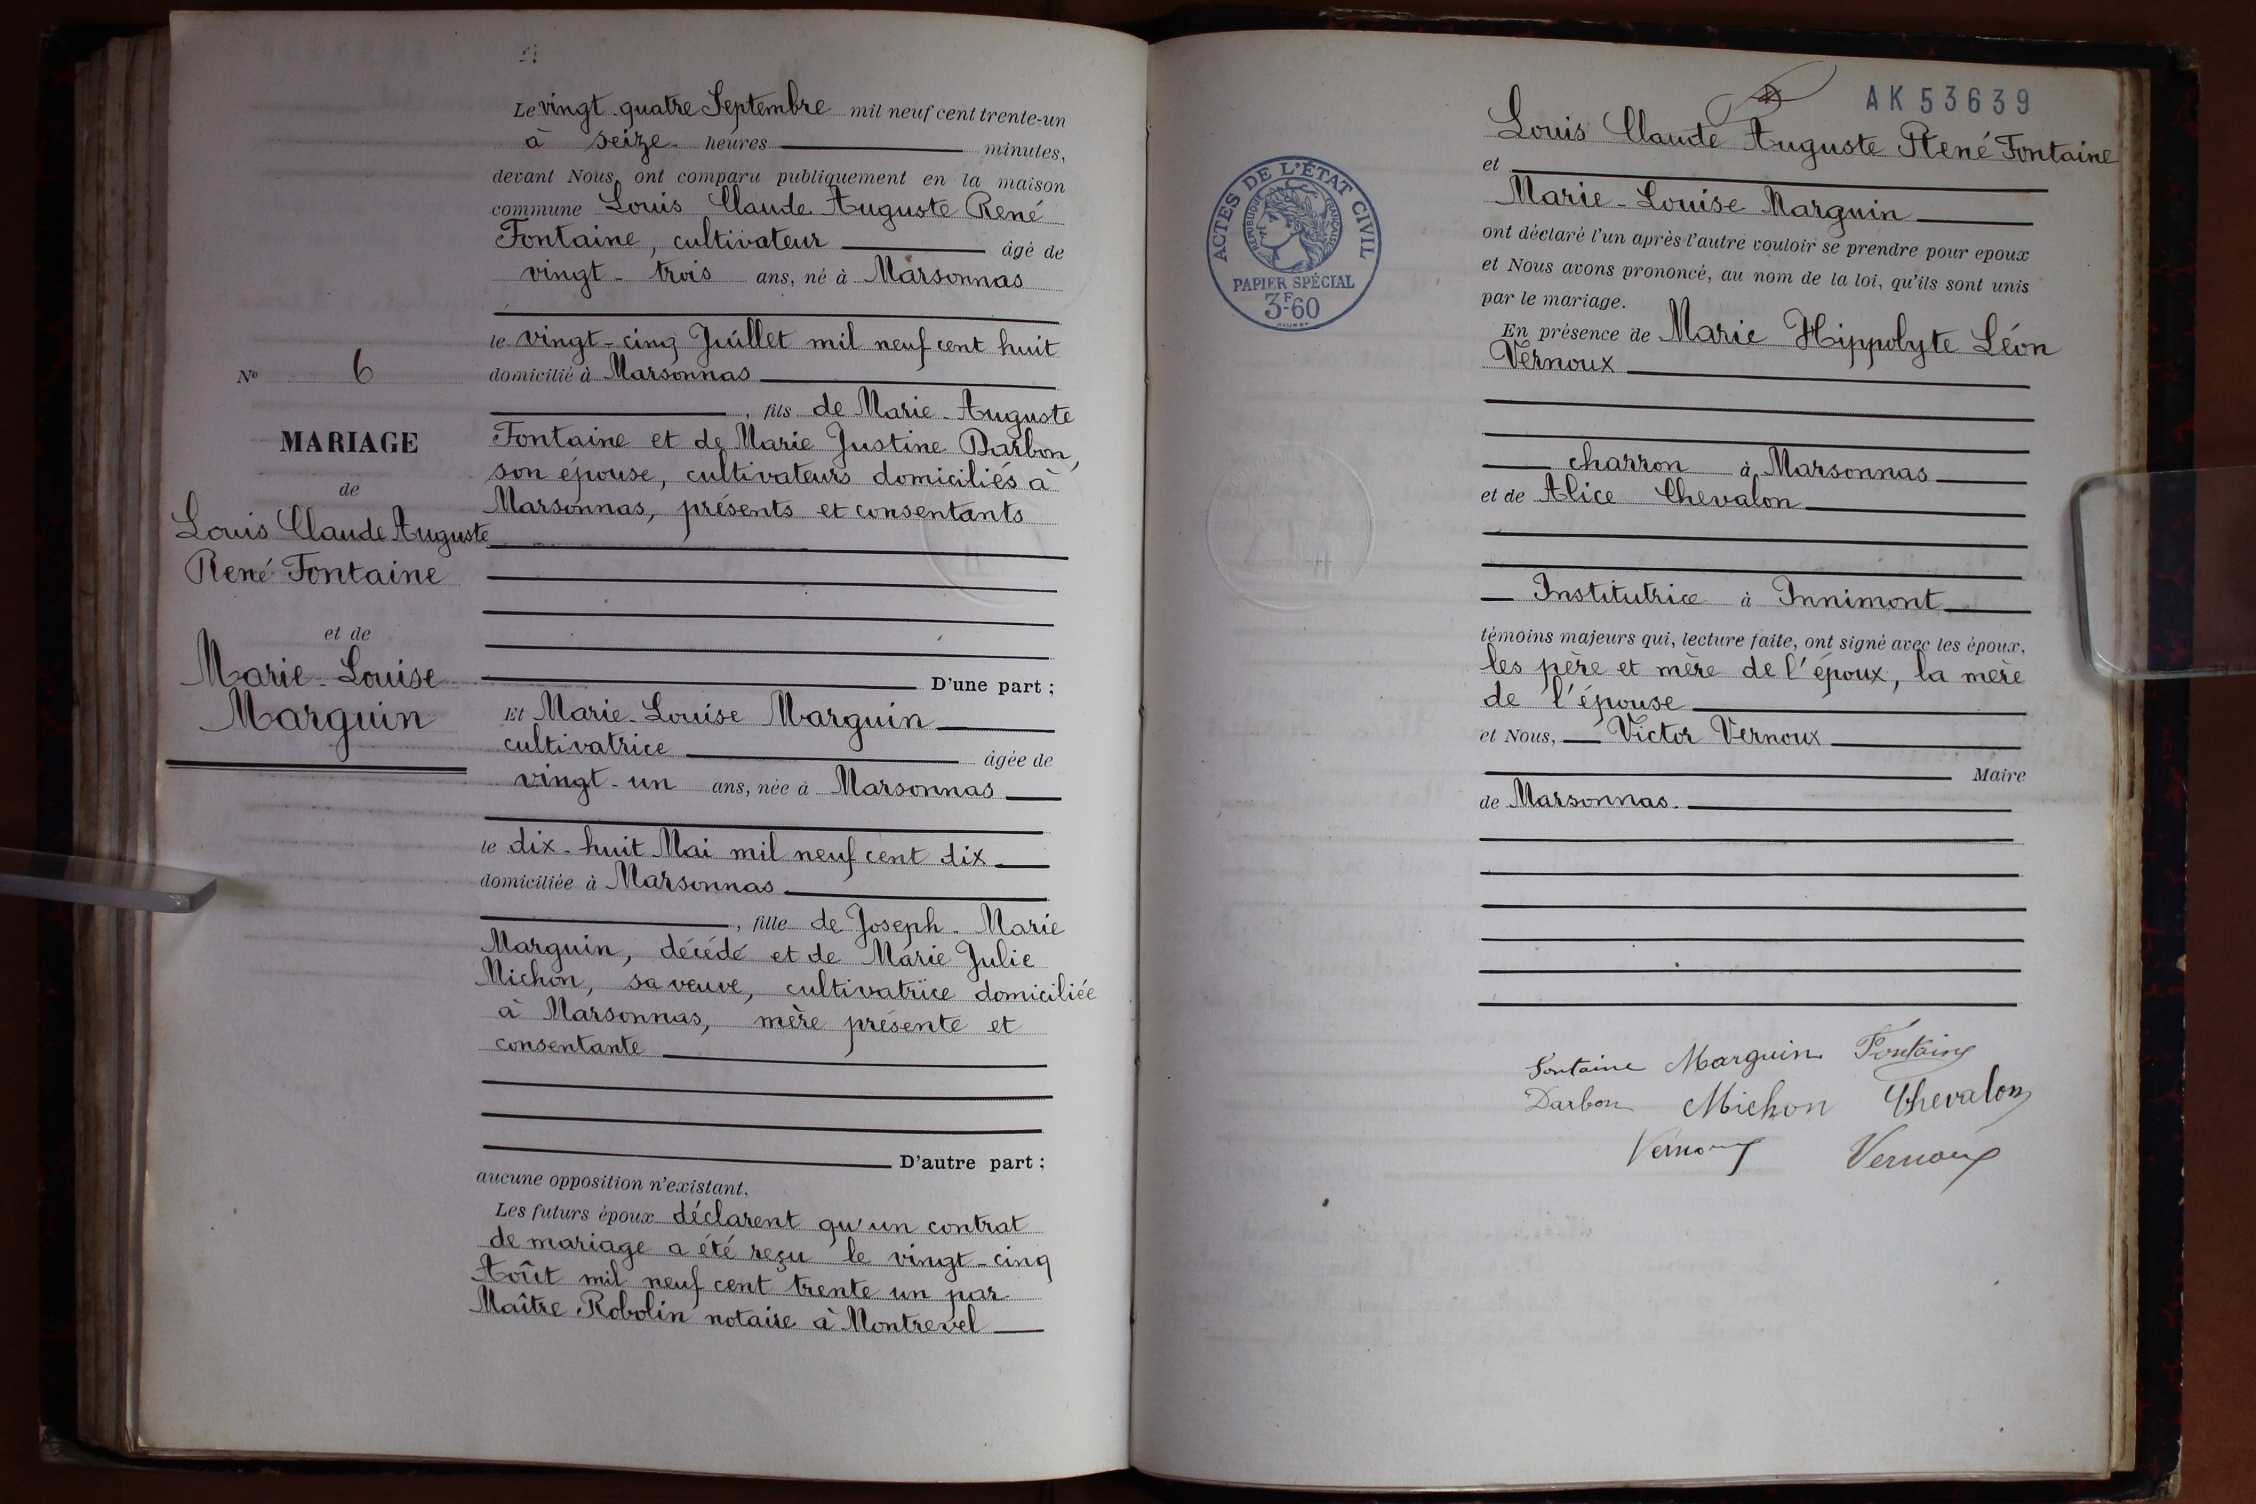 Le vingt-quatre Septembre mil neuf cent trente-un
à seize heures minutes,
devant Nous, ont comparu publiquement en la maison
commune Louis Claude Auguste René
Fontaine, cultivateur âgé de
vingt-trois ans, né à Marsonnas
le vingt-cinq Juillet mil neuf cent huit
domicilié à Marsonnas
, fils de Marie-Auguste
Fontaine et de Marie Justine Darbon,
son épouse, cultivateurs domiciliés à
Marsonnas, présents et consentants
D'une part ;
Et Marie-Louise Marguin
cultivatrice âgée de
vingt-un ans, née à Marsonnas
le dix-huit Mai mil neuf cent dix
domiciliée à Marsonnas
, fille de Joseph-Marie
Marguin, décédé et de Marie Julie
Michon, sa veuve, cultivatrice domiciliée
à Marsonnas, mère présente et
consentante
D'autre part ;
aucune opposition n'existant.
Les futurs époux déclarent qu'un contrat
de mariage a été reçu le vingt-cinq
Août mil neuf cent trente un par
Maître Robolin notaire à Montrevel
N° 6
MARIAGE
de
Louis Claude Auguste
René Fontaine
et de
Marie-Louise
Marguin
AK53639
ACTES DE L'ÉTAT CIVIL
RÉPUBLIQUE FRANÇAISE
PAPIER SPÉCIAL
3F60
Louis Claude Auguste René Fontaine
et
Marie-Louise Marguin
ont déclaré l'un après l'autre vouloir se prendre pour époux
et Nous avons prononcé, au nom de la loi, qu'ils sont unis
par le mariage.
En présence de Marie Hippolyte Léon
Vernoux
charron à Marsonnas
et de Alice Chevalon
Institutrice à Innimont
témoins majeurs qui, lecture faite, ont signé avec les époux,
les père et mère de l'époux, la mère
de l'épouse
et Nous, Victor Vernoux
Maire
de Marsonnas.
Fontaine Marguin Fontaine
Darbon Michon Chevalon
Vernoux Vernoux